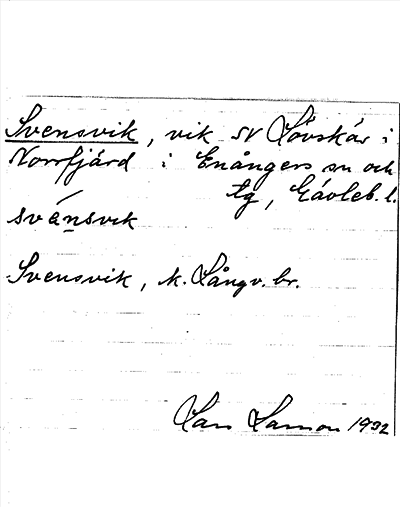 Svensvik, vik SV Lövskär i
Norrfjärd i Enångers sn och
tg, Gävleb. l.
svénsvik
Svensvik, k. Långv. br.
Lars Larson 1932